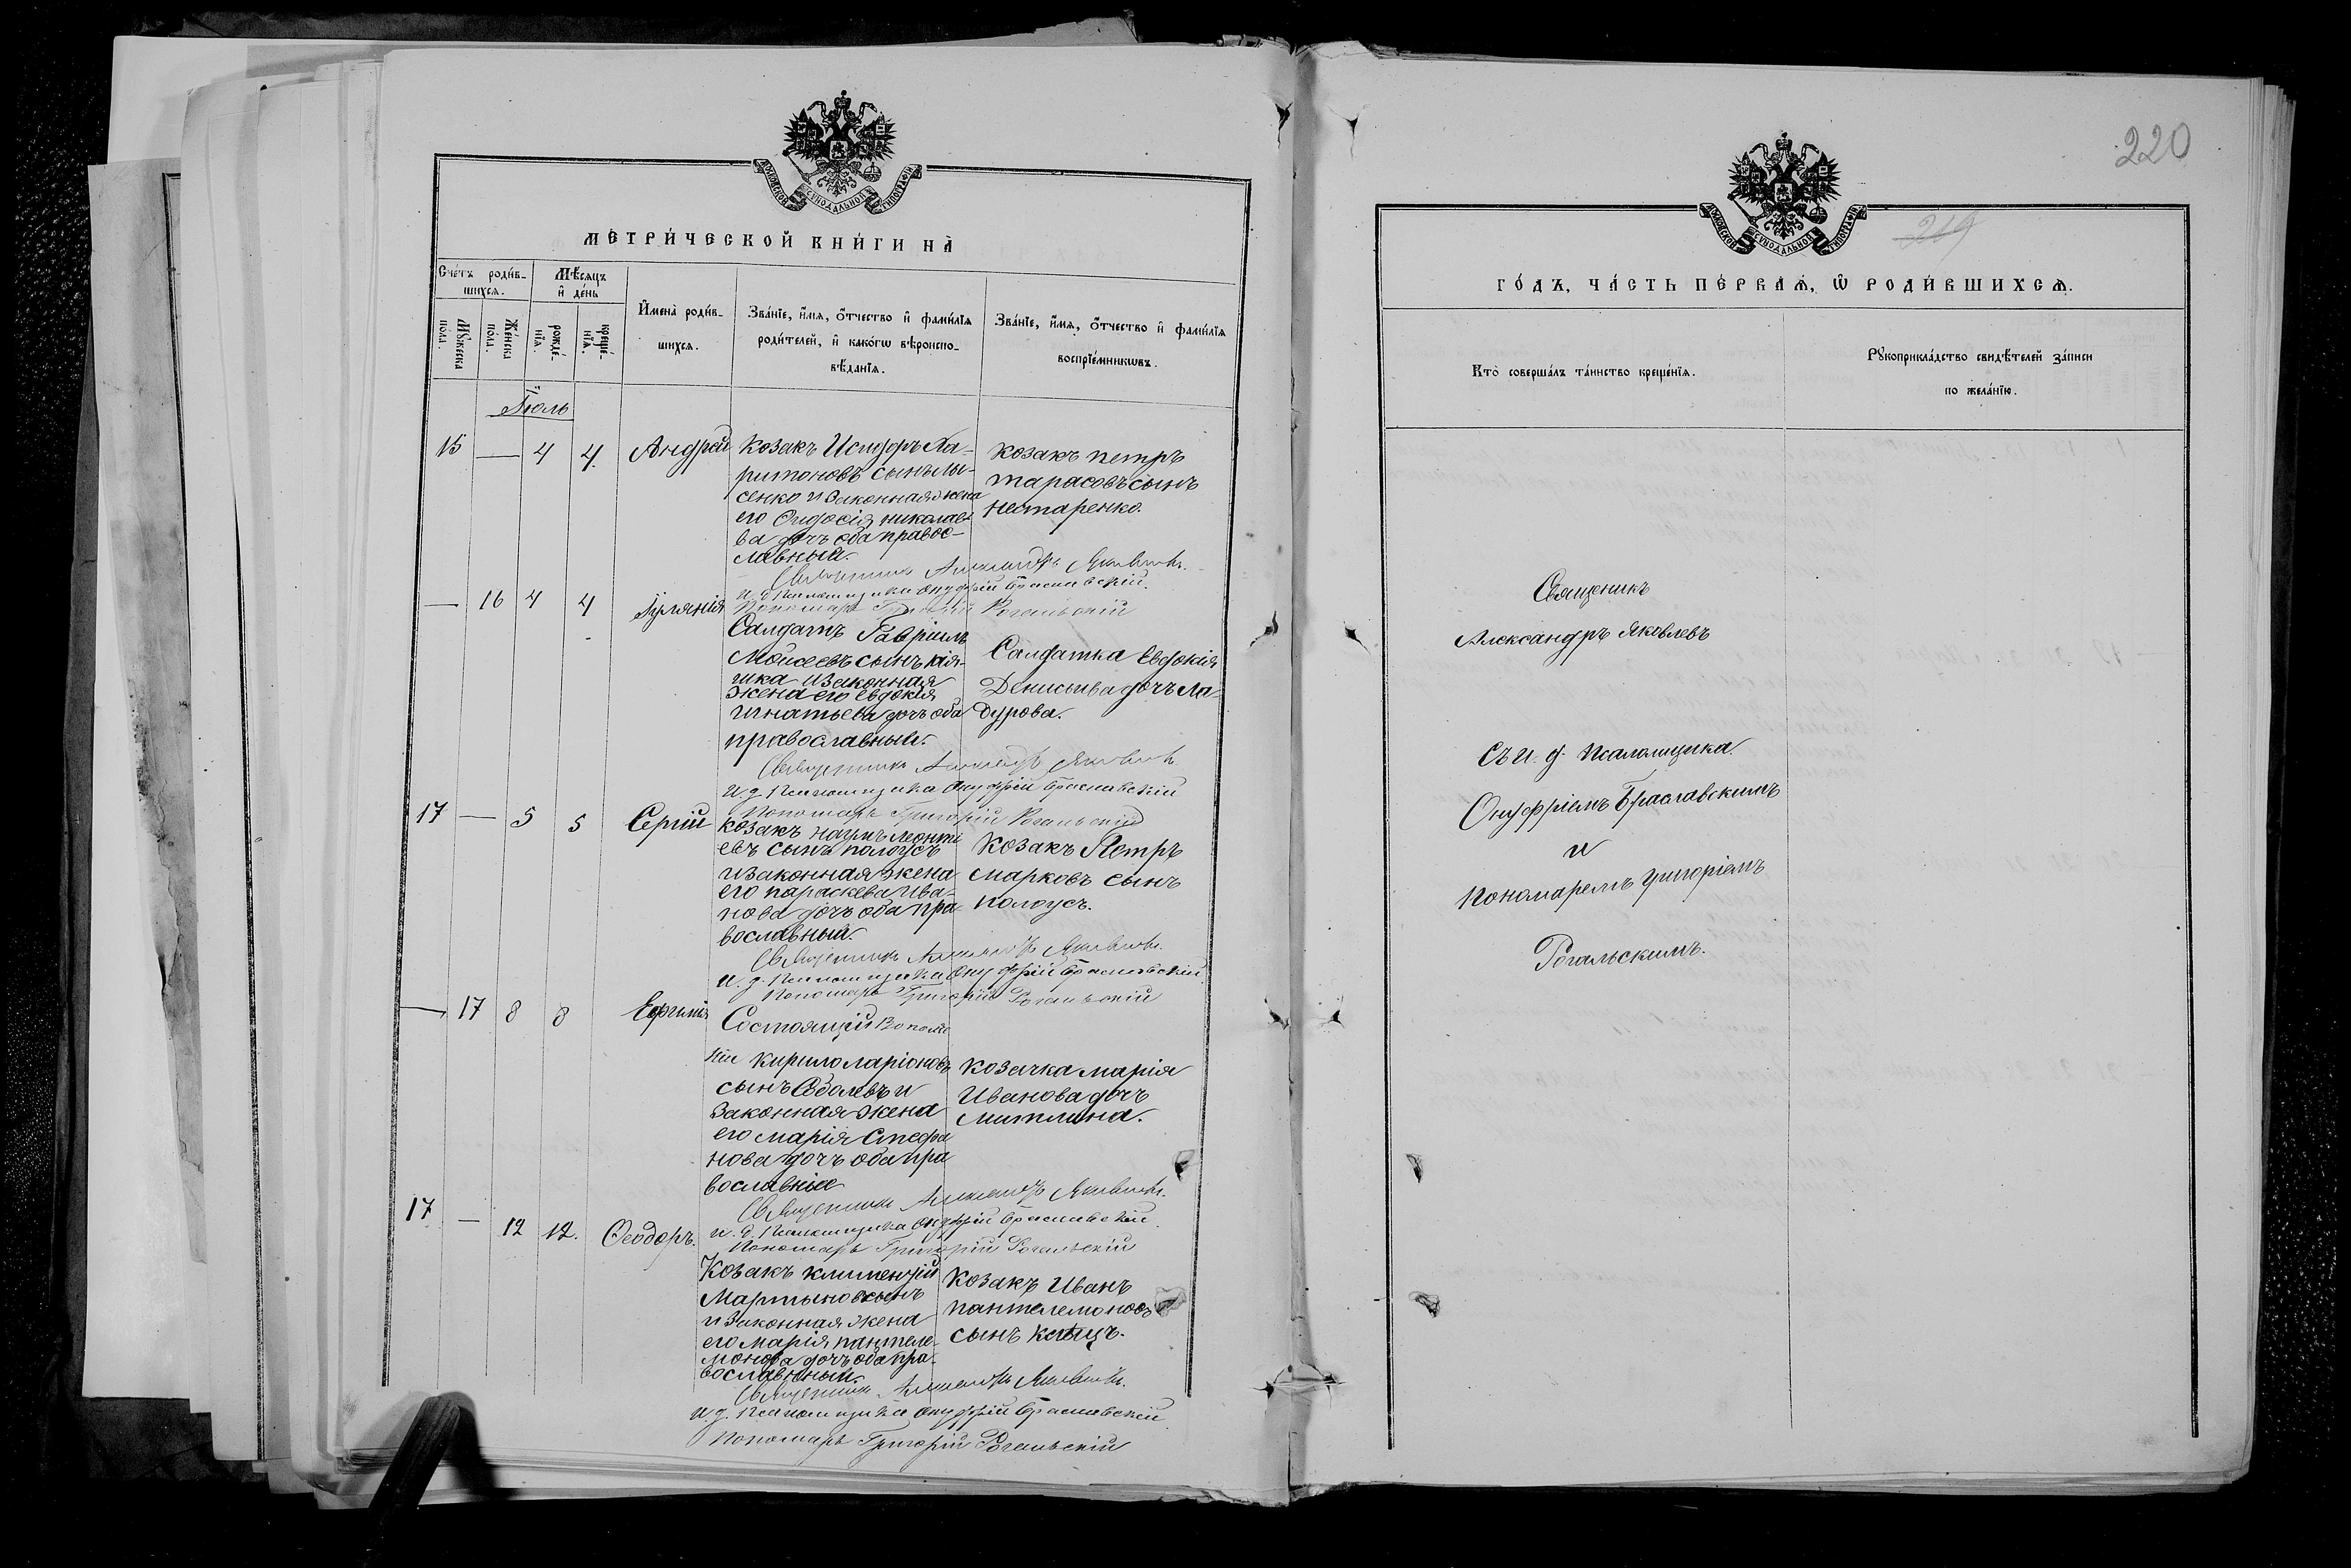 МОСКОВСКОЙ СУНОДАЛЬНОЙ ТИПОГРАФІИ
МЕТРИ́ЧЕСКОЙ КНИ́ГИ НА̀
Сче́тъ роди́в-
шихсѧ.
Мѣ́сяцъ
и҆ де́нь
Мꙋ́жеска
по́ла.
Же́нска
по́ла.
рожде́-
нїѧ.
креще́-
нїѧ.
И҆мена̀ роди́в-
шихсѧ.
Зва́нїе, и҆́мѧ, ѻ҆́тчество и҆ фами́лїѧ
роди́телей, и҆ како́гѡ вѣроиспо-
вѣ́данїѧ.
Зва́нїе, и҆́мѧ, ѻ҆́тчество и҆ фами́лїѧ
воспрїе́мникѡвъ.
Іюль
15 — 4 4. Андрей
Козакъ Иосифъ Ха-
ритоновъ сынъ Лы-
сенко и законная жена
его Феодосія николае
ва дочъ оба правос-
лавныи.
Козакъ петръ
тарасовъ сынъ
нестаренко.
Священникъ Александръ Яковлевъ.
И. д. Псаломщика Онуфрій Браславскій.
Пономарь Григорій Рогальскій
— 16 4 4 Іулянія
Салдатъ Гавріилъ
Моисеевъ сынъ
и законная
жена его Евдокія
игнатьева дочъ оба
православныи.
Салдатка Евдокія
Денисиева дочъ Ла-
дурова.
Священникъ Александръ Яковлевъ.
И. д. Псаломщика Онуфрій Браславскій
Пономарь Григорій Рогальскій
17 — 5 5 Сергій
козакъ наумъ леонти
евъ сынъ полоусъ
и законная жена
его параскева ива-
нова дочъ оба пра
вославныи.
Козакъ Петръ
марковъ сынъ
полоусъ.
Священникъ Александръ Яковлевъ.
И. д. Псаломщика Онуфрій Браславскій
Пономарь Григорій Рогальскій
— 17 8 8 Евфимія
Состоящій
кирило ларіоновъ
сынъ и
законная жена
его марія Стефа
нова дочъ оба пра
вославніе
козачка марія
Иванова дочъ
митлина.
Священникъ Александръ Яковлевъ.
и. д. Псаломщика Онуфрій Браславскій.
Пономарь Григорій Рогальскій
17 — 12 12. Феодоръ.
Козакъ климентій
Мартыновъ сынъ
и законная жена
его марія пантеле-
монова дочъ оба пра-
вославныи.
Козакъ Иванъ
пантелемоновъ
сынъ
Священникъ Александръ Яковлевъ.
И. д. Псаломщика Онуфрій Браславскій
Пономарь Григорій Рогальскій
220
219
МОСКОВСКОЙ СУНОДАЛЬНОЙ ТИПОГРАФІИ
ГО́ДЪ, ЧА́СТЬ ПЕ́РВАѦ, Ѡ҆ РОДИ́ВШИХСѦ.
Кто̀ соверша́лъ та́инство креще́нїѧ.
Рꙋкоприкла́дство свидѣ́телей за́писи
по жела́нїю.
Священикъ
Александръ Яковлевъ
Съ И. д. Псаломщика
Онуфріемъ Браславскимъ
и
Пономаремъ григоріемъ
Рогальскимъ.